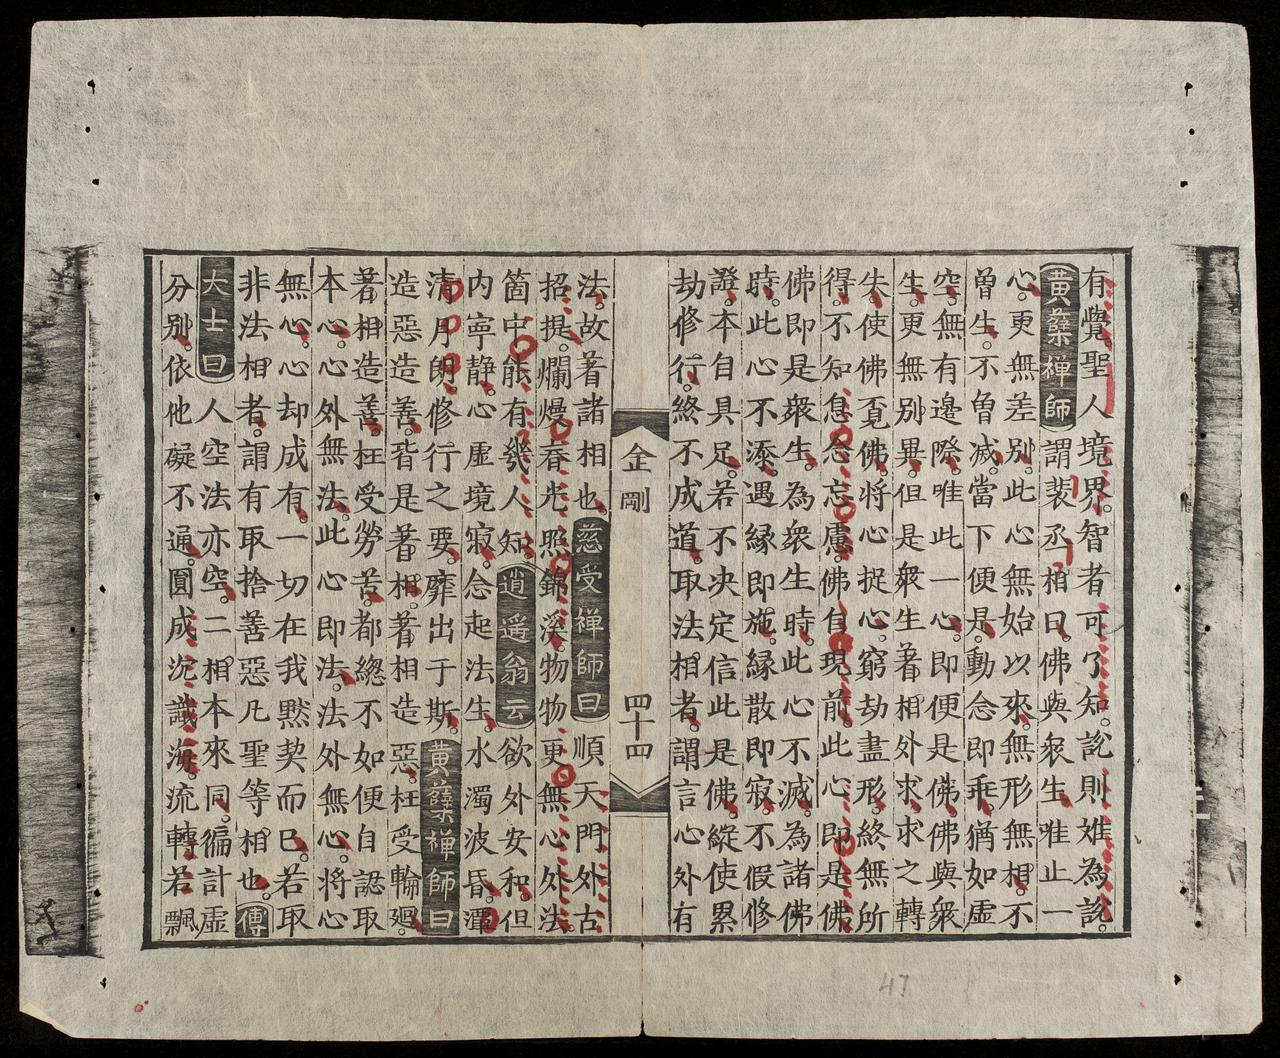 有覺聖人境界。智者可了知。說則難為說。
黃蘗禪師謂裴丞相曰。佛與衆生唯止一
心。更無差別。此心無始以來。無形無相。不
曾生。不曾滅。當下便是。動念即乖。猶如虛
空。無有邊際。唯此一心。即便是佛。佛與衆
生。更無別異。但是衆生著相外求。求之轉
失。使佛覔佛。將心捉心。窮劫盡形。終無所
得。不知息念忘慮。佛自現前。此心即是佛。
佛即是衆生。為衆生時。此心不滅。為諸佛
時。此心不添。遇緣即施。緣散即寂。不假修
證。本自具足。若不决定信此是佛。縱使累
劫修行。終不成道。取法相者。謂言心外有
金剛 四十四
法。故著諸相也。慈受禪師曰順天門外古
招提。爛熳春光照錦溪。物物更無心外法。
箇中能有幾人知。逍遥翁云欲外安和。但
内寧静。心虛境寂。念起法生。水濁波昏。潭
清月朗。修行之要。靡出于斯。黃蘗禪師曰
造惡造善。皆是著相。著相造惡。枉受輪廻。
著相造善。枉受勞苦。都總不如便自認取
本心。心外無法。此心即法。法外無心。將心
無心。心却成有。一切在我默契而已。若取
非法相者。謂有取捨善惡凡聖等相也。傅
大士曰人空法亦空。二相本來同。徧計虛
分別。依他礙不通。圓成沉識海。流轉若飄
47